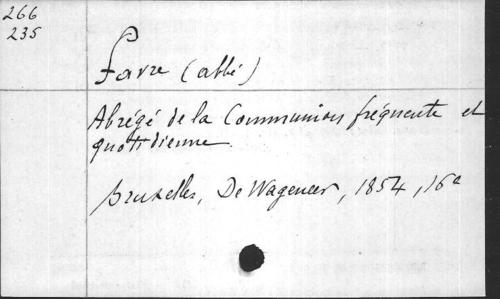 266
235
Favre (abbé)
Abrégé de la Communion fréquente et
quotidienne.
Bruxelles, De Wageneer, 1854, 16°